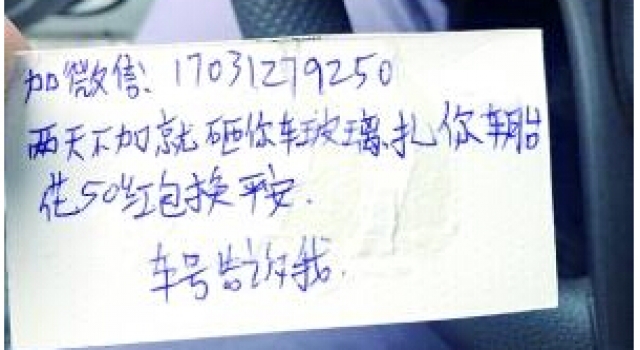 加微信:17031279250
两天不加就砸你车玻璃、扎你车胎
花50红包换平安.
车号告诉我.